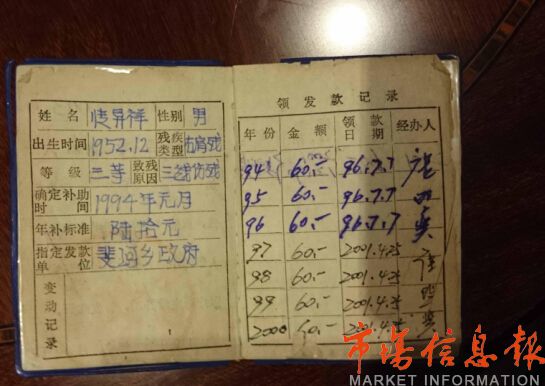 姓名 性别 男
出生时间 1952.12 残疾类型 右肩残
等级 三等 致残原因 三线伤残
确定补助时间 1994年元月
年补标准 陆拾元
指定发款单位 斐河乡政府
变动记录
领发款记录
年份 金额 领款日期 经办人
94 60.- 96.7.7
95 60.- 96.7.7
96 60.- 96.7.7
97 60.- 2001.4.25
98 60.- 2001.4.25
99 60.- 2001.4.25
2000 60.- 2001.4.25
市场信息报
MARKET INFORMATION